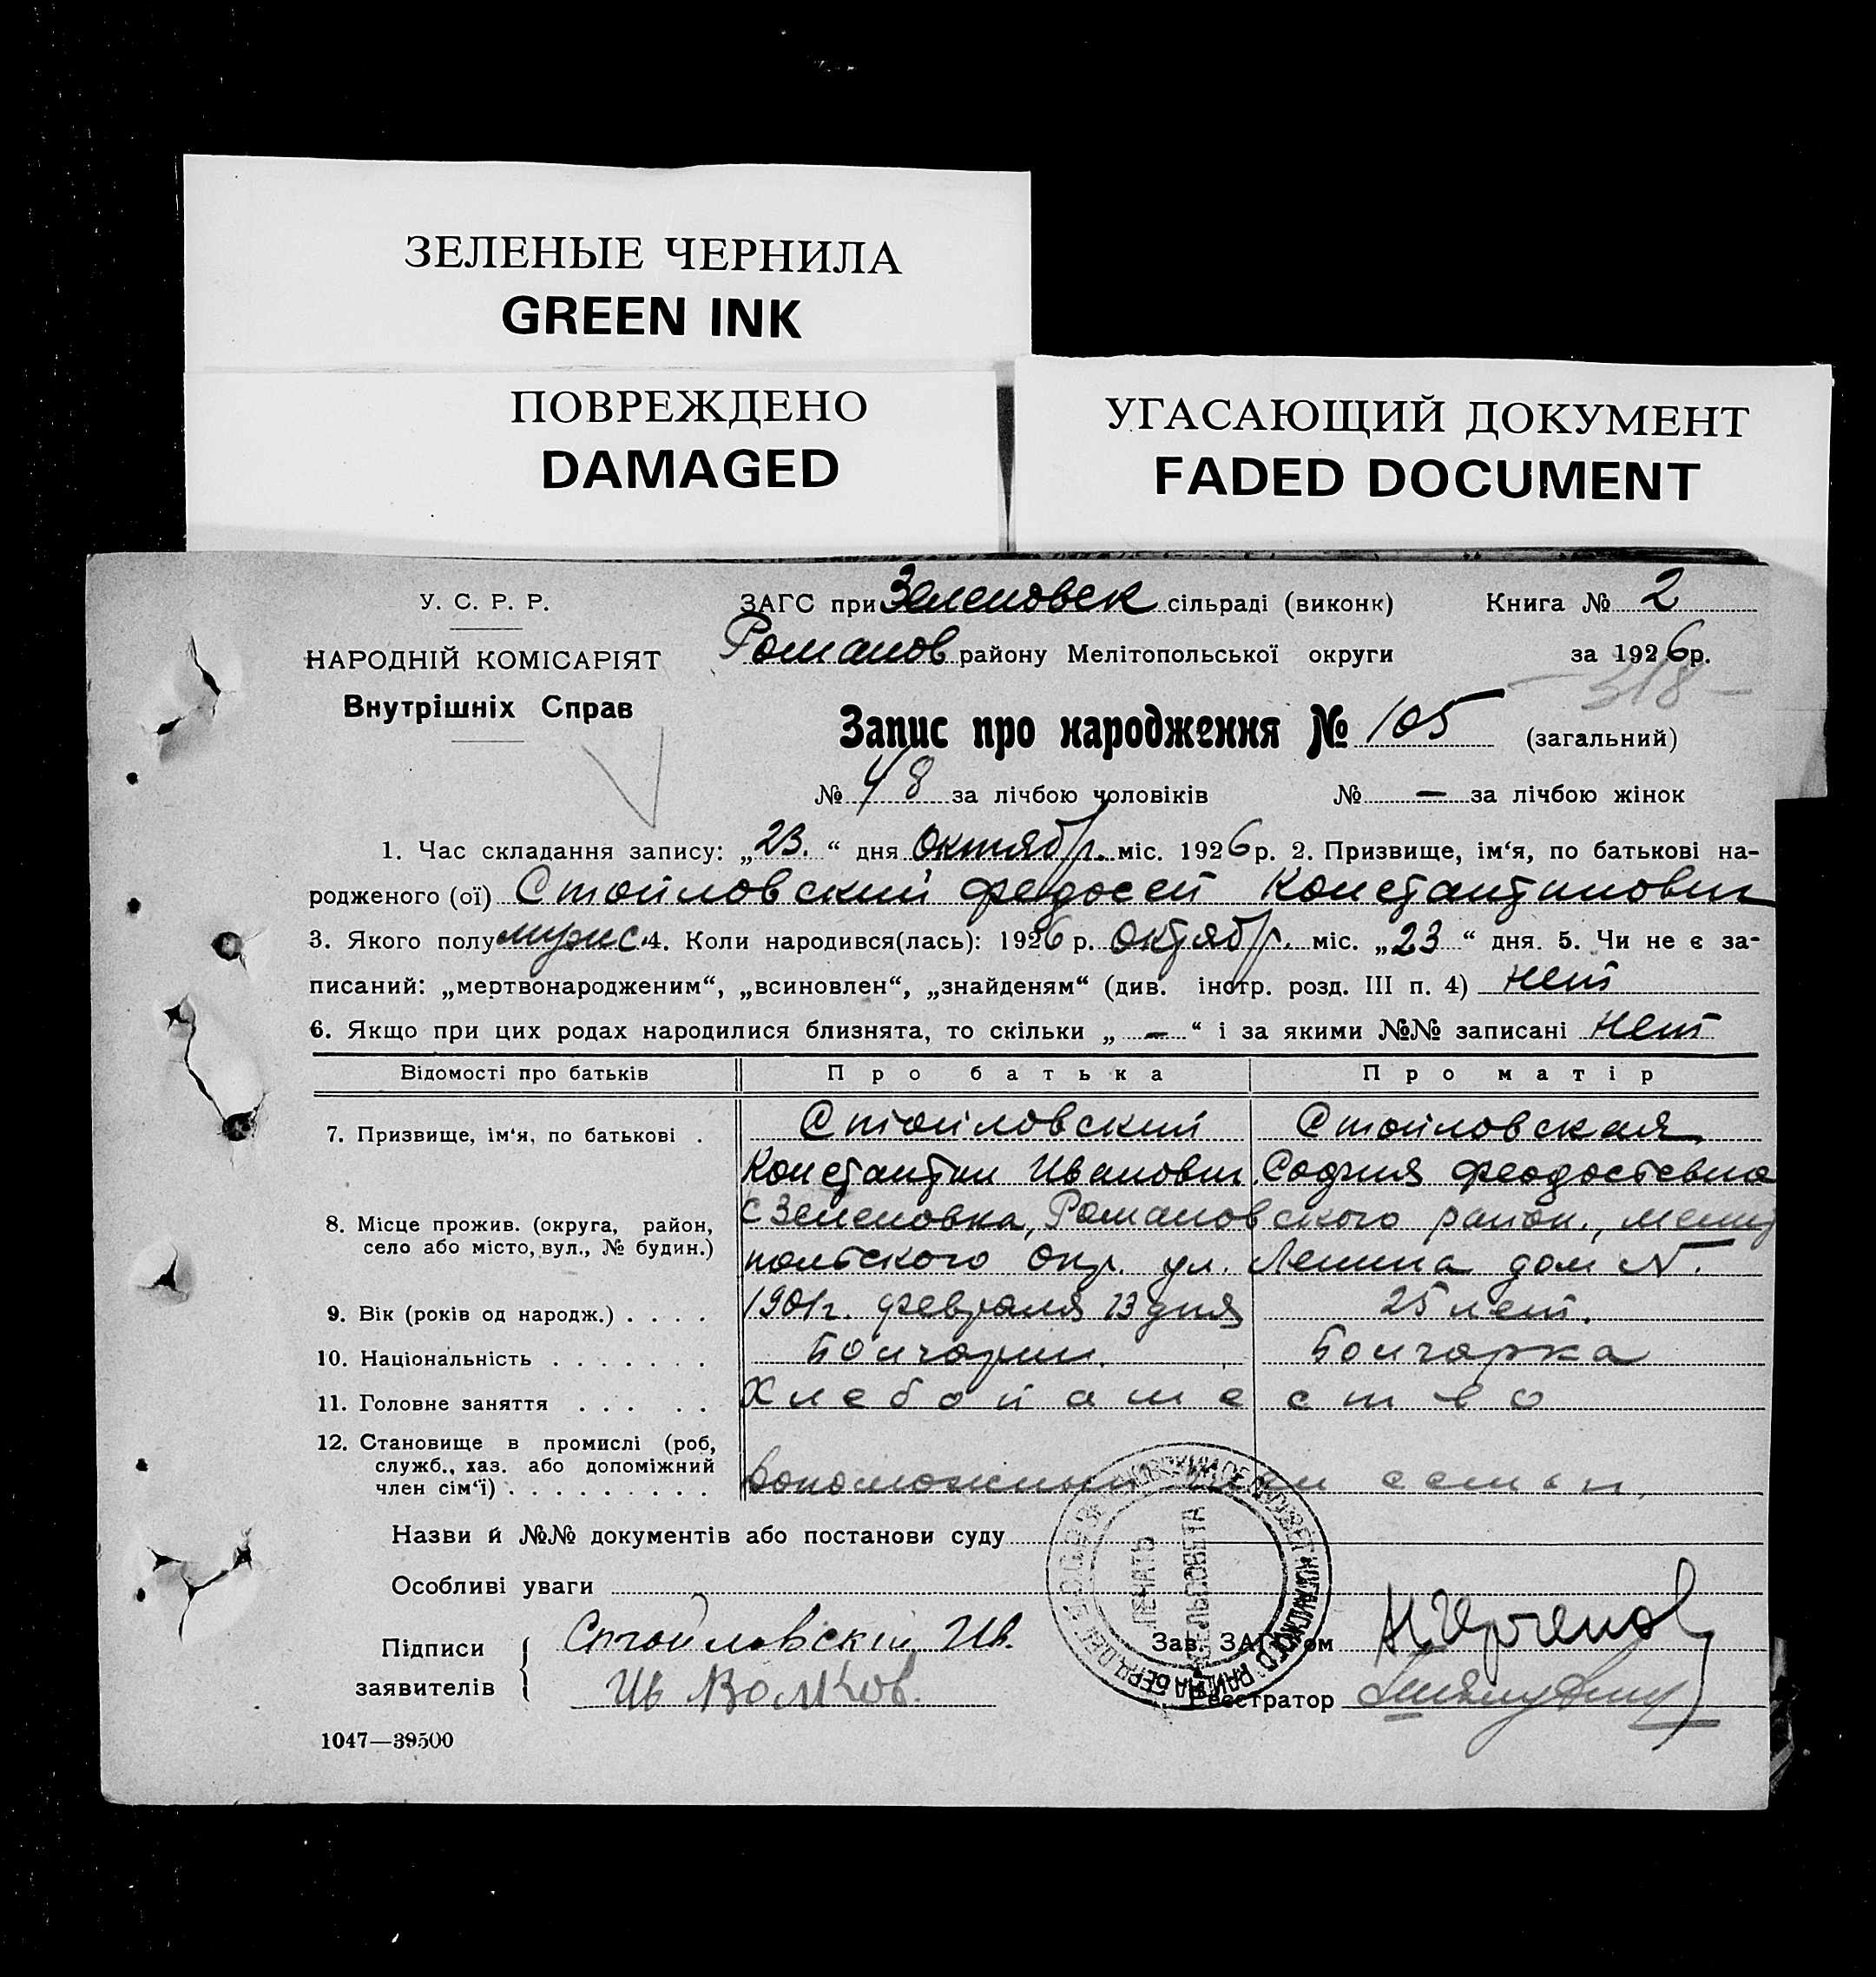 ЗЕЛЕНЫЕ ЧЕРНИЛА
GREEN INK
ПОВРЕЖДЕНО
DAMAGED
УГАСАЮЩИЙ ДОКУМЕНТ
FADED DOCUMENT
У. С. Р. Р.
НАРОДНІЙ КОМІСАРІЯТ
Внутрішніх Справ
ЗАГС при Зеленовск сільраді (виконк) Книга № 2
Романов району Мелітопольської округи за 1926 р.
318
Запис про народження № 105 (загальний)
№ 48 за лічбою чоловіків № — за лічбою жінок
1. Час складання запису: „23.“ дня октябр. міс. 1926 р. 2. Призвище, ім‘я, по батькові на-
родженого (ої) Стоиловский Федосей Константинович
3. Якого полу мужс. 4. Коли народився(лась): 1926 р. октябр. міс. „23“ дня. 5. Чи не є за-
писаний: „мертвонародженим“, „всиновлен“, „знайденям“ (див. інстр. розд. III п. 4) нет
6. Якщо при цих родах народилися близнята, то скільки „—“ і за якими №№ записані нет
Відомості про батьків Про батька Про матір
7. Призвище, ім‘я, по батькові . Стоиловский Стоиловская
Константин Иванович София Феодостевна
8. Місце прожив. (округа, район, с Зеленовка, Романовского район., Мелит
село або місто, вул., № будин.) польского Окр. ул. Ленина дом №.
9. Вік (років од народж.) . . . . 1901 г. февраля 13 дня 25 лет.
10. Національність . . . . . . . Болгарин. Болгарка
11. Головне заняття . . . . . Хлебопашество
12. Становище в промислі (роб,
служб., хаз. або допоміжний
член сім‘ї) . . . . . . . . . семьи.
Назви й №№ документів або постанови суду
Особливі уваги
ПЕЧАТЬ
СЕЛЬСОВЕТА
Підписи Стоиловскій Ив. Зав. ЗАГС‘ом
заявителів Ив Волков. Реєстратор
1047—39500